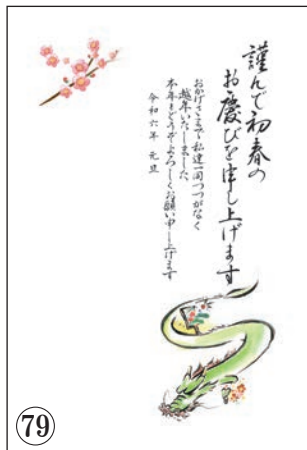 謹んで初春の
お慶びを申し上げます
おかげさまで私達一同つつがなく
越年いたしました
本年もどうぞよろしくお願い申し上げます
令和六年 元旦
79